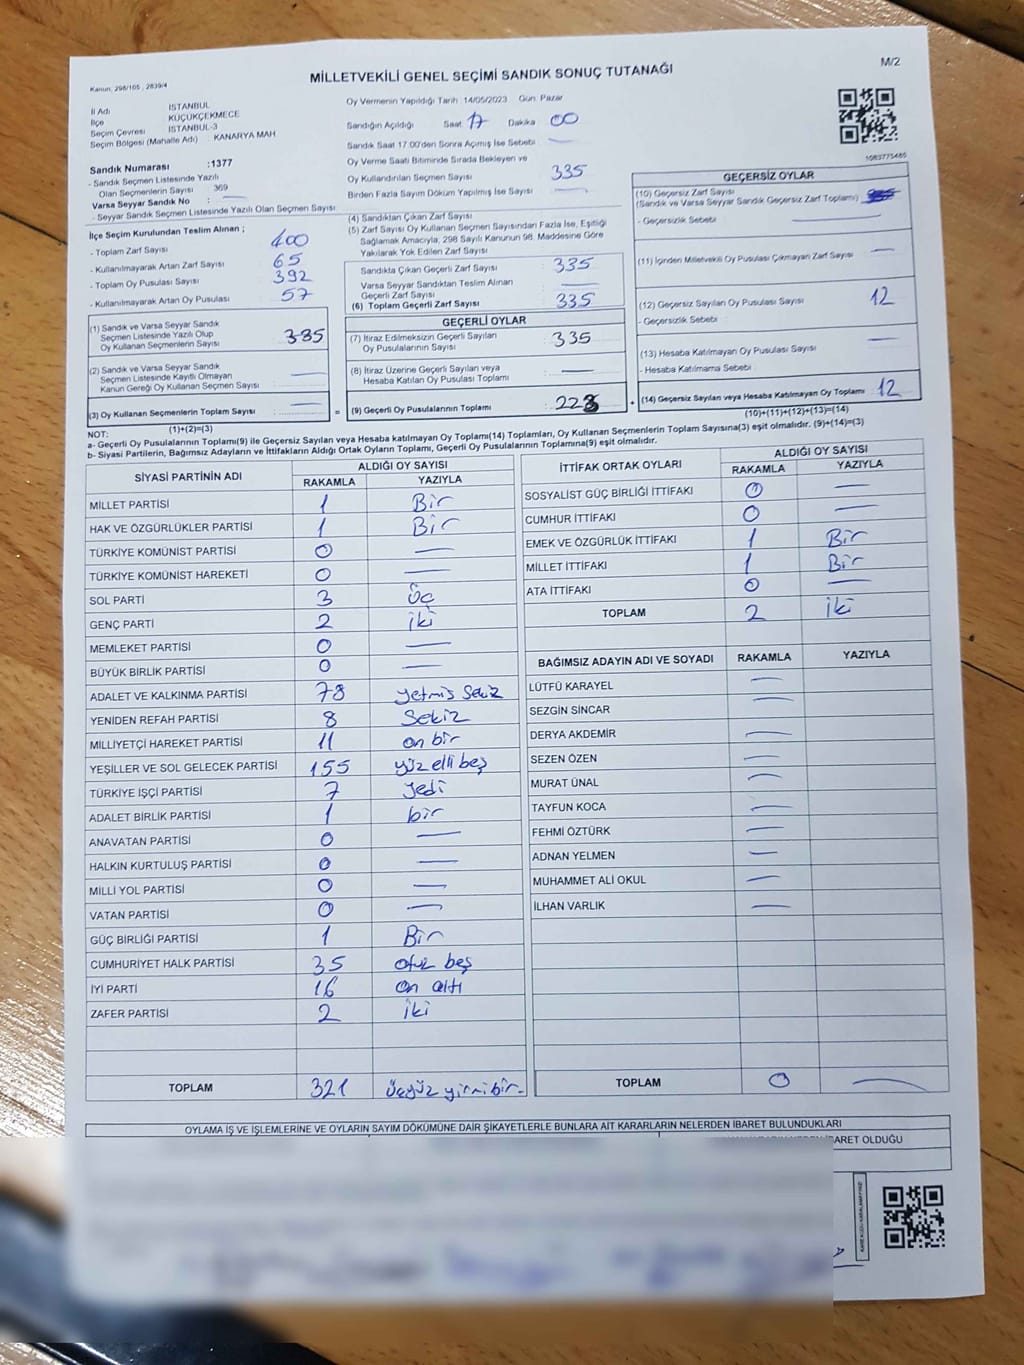 M/2
MİLLETVEKİLİ GENEL SEÇİMİ SANDIK SONUÇ TUTANAĞI
Kanun, 298/105 , 2839/4
İl Adı İSTANBUL
İlçe KÜÇÜKÇEKMECE
Seçim Çevresi İSTANBUL-3
Seçim Bölgesi (Mahalle Adı) : KANARYA MAH
Sandık Numarası :1377
- Sandık Seçmen Listesinde Yazılı
Olan Seçmenlerin Sayısı : 369
Varsa Seyyar Sandık No :
- Seyyar Sandık Seçmen Listesinde Yazılı Olan Seçmen Sayısı:
İlçe Seçim Kurulundan Teslim Alınan ;
- Toplam Zarf Sayısı : 400
- Kullanılmayarak Artan Zarf Sayısı : 65
- Toplam Oy Pusulası Sayısı : 392
- Kullanılmayarak Artan Oy Pusulası : 57
(1) Sandık ve Varsa Seyyar Sandık
Seçmen Listesinde Yazılı Olup
Oy Kullanan Seçmenlerin Sayısı : 335
(2) Sandık ve Varsa Seyyar Sandık
Seçmen Listesinde Kayıtlı Olmayan
Kanun Gereği Oy Kullanan Seçmen Sayısı :
(3) Oy Kullanan Seçmenlerin Toplam Sayısı :
(1)+(2)=(3)
=
Oy Vermenin Yapıldığı Tarih :14/05/2023 Gün: Pazar
Sandığın Açıldığı Saat 17 Dakika 00
Sandık Saat 17.00'den Sonra Açılmış İse Sebebi
Oy Verme Saati Bitiminde Sırada Bekleyen ve
Oy Kullandırılan Seçmen Sayısı 335
Birden Fazla Sayım Döküm Yapılmış İse Sayısı
(4) Sandıktan Çıkan Zarf Sayısı
(5) Zarf Sayısı Oy Kullanan Seçmen Sayısından Fazla İse, Eşitliği
Sağlamak Amacıyla, 298 Sayılı Kanunun 98. Maddesine Göre
Yakılarak Yok Edilen Zarf Sayısı
Sandıkta Çıkan Geçerli Zarf Sayısı : 335
Varsa Seyyar Sandıktan Teslim Alınan
Geçerli Zarf Sayısı
(6) Toplam Geçerli Zarf Sayısı : 335
GEÇERLİ OYLAR
(7) İtiraz Edilmeksizin Geçerli Sayılan
Oy Pusulalarının Sayısı : 335
(8) İtiraz Üzerine Geçerli Sayılan veya
Hesaba Katılan Oy Pusulası Toplamı
(9) Geçerli Oy Pusulalarının Toplamı
+
1083775465
GEÇERSİZ OYLAR
(10) Geçersiz Zarf Sayısı
(Sandık ve Varsa Seyyar Sandık Geçersiz Zarf Toplamı)
- Geçersizlik Sebebi
(11) İçinden Milletvekili Oy Pusulası Çıkmayan Zarf Sayısı
(12) Geçersiz Sayılan Oy Pusulası Sayısı : 12
- Geçersizlik Sebebi
(13) Hesaba Katılmayan Oy Pusulası Sayısı
- Hesaba Katılmama Sebebi
(14) Geçersiz Sayılan veya Hesaba Katılmayan Oy Toplamı : 12
(10)+(11)+(12)+(13)=(14)
NOT:
a- Geçerli Oy Pusulalarının Toplamı(9) ile Geçersiz Sayılan veya Hesaba katılmayan Oy Toplamı(14) Toplamları, Oy Kullanan Seçmenlerin Toplam Sayısına(3) eşit olmalıdır. (9)+(14)=(3)
b- Siyasi Partilerin, Bağımsız Adayların ve İttifakların Aldığı Ortak Oyların Toplamı, Geçerli Oy Pusulalarının Toplamına(9) eşit olmalıdır.
SİYASİ PARTİNİN ADI ALDIĞI OY SAYISI
RAKAMLA YAZIYLA
MİLLET PARTİSİ 1 Bir
HAK VE ÖZGÜRLÜKLER PARTİSİ 1 Bir
TÜRKİYE KOMÜNİST PARTİSİ 0 —
TÜRKİYE KOMÜNİST HAREKETİ 0 —
SOL PARTİ 3 Üç
GENÇ PARTİ 2 iki
MEMLEKET PARTİSİ 0 —
BÜYÜK BİRLİK PARTİSİ 0 —
ADALET VE KALKINMA PARTİSİ 78 yetmiş Sekiz
YENİDEN REFAH PARTİSİ 8 Sekiz
MİLLİYETÇİ HAREKET PARTİSİ 11 on bir
YEŞİLLER VE SOL GELECEK PARTİSİ 155 yüz elli beş
TÜRKİYE İŞÇİ PARTİSİ 7 Yedi
ADALET BİRLİK PARTİSİ 1 bir
ANAVATAN PARTİSİ 0 —
HALKIN KURTULUŞ PARTİSİ 0 —
MİLLİ YOL PARTİSİ 0 —
VATAN PARTİSİ 0 —
GÜÇ BİRLİĞİ PARTİSİ 1 Bir
CUMHURİYET HALK PARTİSİ 35 otuz beş
İYİ PARTİ 16 on altı
ZAFER PARTİSİ 2 iki
TOPLAM 321 üçyüz yirmi bir.
İTTİFAK ORTAK OYLARI ALDIĞI OY SAYISI
RAKAMLA YAZIYLA
SOSYALİST GÜÇ BİRLİĞİ İTTİFAKI 0 —
CUMHUR İTTİFAKI 0 —
EMEK VE ÖZGÜRLÜK İTTİFAKI 1 Bir
MİLLET İTTİFAKI 1 Bir
ATA İTTİFAKI 0 —
TOPLAM 2 iki
BAĞIMSIZ ADAYIN ADI VE SOYADI RAKAMLA YAZIYLA
LÜTFÜ KARAYEL —
SEZGİN SİNCAR —
DERYA AKDEMİR —
SEZEN ÖZEN —
MURAT ÜNAL —
TAYFUN KOCA —
FEHMİ ÖZTÜRK —
ADNAN YELMEN —
MUHAMMET ALİ OKUL —
İLHAN VARLIK —
TOPLAM 0 —
OYLAMA İŞ VE İŞLEMLERİNE VE OYLARIN SAYIM DÖKÜMÜNE DAİR ŞİKAYETLERLE BUNLARA AİT KARARLARIN NELERDEN İBARET BULUNDUKLARI
İBARET OLDUĞU